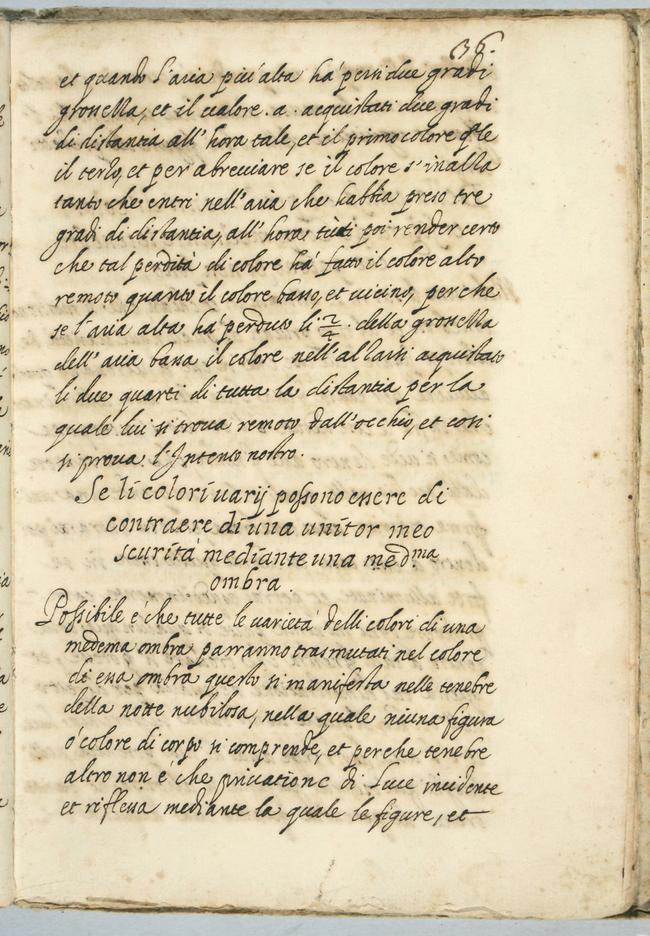 36.
et quando l'aria piu' alta ha' persi due gradi
grossezza, et il ualore .a. acquistati due gradi
di distantia all'hora tale, et il primo colore q͂le
il terzo, et per abreuiare se il colore s'inalza
tanto che entri nell'aria che habbia preso tre
gradi di distantia, all'hora tu ti poi render certo
che tal perdità di colore ha' fatto il colore alto
remoto quanto il colore basso, et uicino, perche
se l'aria alta ha' perduto li 2/4 della grossezza
dell'aria bassa il colore nell'alzarsi acquistato
li due quarti di tutta la distantia per la
quale lui si troua remoto dall'occhio, et cosi
si proua l'Intento nostro.
Se li colori uarij possono essere di
contraere di una unitor meo
scurità mediante una med.ma
ombra.
Possibile é che tutte le varietà delli colori di una
medema ombra parranno trasmutati nel colore
di essa ombra questo si manifesta nelle tenebre
della notte nubilosa, nella quale niuna figura
ó colore di corpo si comprende, et perche tenebre
altro non é che priuatione di Luce incidente
et riflessa mediante la quale le figure, et